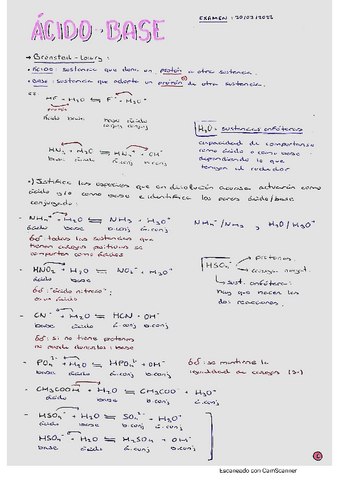 EXAMEN: 30/03/2022
ÁCIDO-BASE
→ Brønsted-Lowry:
• ÁCIDO: sustancia que dona un protón a otra sustancia.
• BASE: sustancia que adopta un protón de otra sustancia.
HF + H₂O ⇌ F⁻ + H₃O⁺
ácido base base ácido
conjug conjug
H₂O = sustancias anfóteras
capacidad de comportarse
como ácido o como base
dependiendo lo que
tengan al rededor
NH₃ + H₂O ⇌ NH₄⁺ + OH⁻
base ácido á.conj b.conj
•) Justifica las especies que en disolución acuosa actuarían como
ácido y/o como base e identifica los pares ácido/base
conjugado:
- NH₄⁺ + H₂O ⇌ NH₃ + H₃O⁺ NH₄⁺/NH₃, H₂O/H₃O⁺
ácido base b.conj á.conj
todas las sustancias que
tienen cargas positivas se
comportan como ácidos
- HNO₂ + H₂O ⇌ NO₂⁻ + H₃O⁺
ácido base b.conj á.conj
"ácido nitroso":
HSO₄⁻
protones
carga negat.
sust. anfótera:
hay que hacer las
dos reacciones.
- CN⁻ + H₂O ⇌ HCN + OH⁻
base ácido á.conj b.conj
si no tiene protones
no puede donarlos: base
- PO₄³⁻ + H₂O ⇌ HPO₄²⁻ + OH⁻
base ácido á.conj b.conj
se mantiene la
de cargas (3-)
- CH₃COOH + H₂O ⇌ CH₃COO⁻ + H₃O⁺
ácido base b.conj á.conj
- HSO₄⁻ + H₂O ⇌ SO₄²⁻ + H₃O⁺
ácido base b.conj á.conj
HSO₄⁻ + H₂O ⇌ H₂SO₄ + OH⁻
base ácido á.conj b.conj
Escaneado con CamScanner